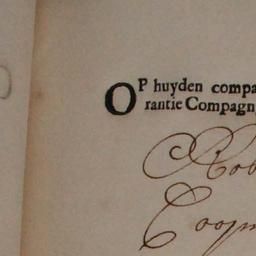 OP huyden compa
rantie Compagn
Rob
Coopm